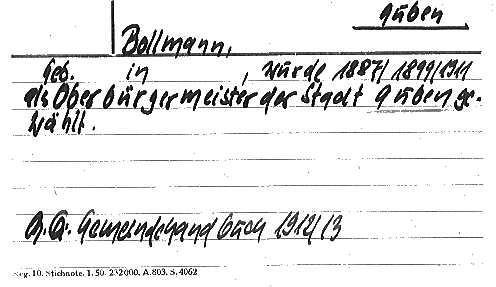 Guben
Bollmann,
Geb. in , wurde 1887/1899/1911
als Oberbürgermeister der Stadt Guben ge-
wählt.
Gemeindehandbuch 1912/13
Reg. 10. Stichnote. 1. 50. 232000. A.803. S. 4062